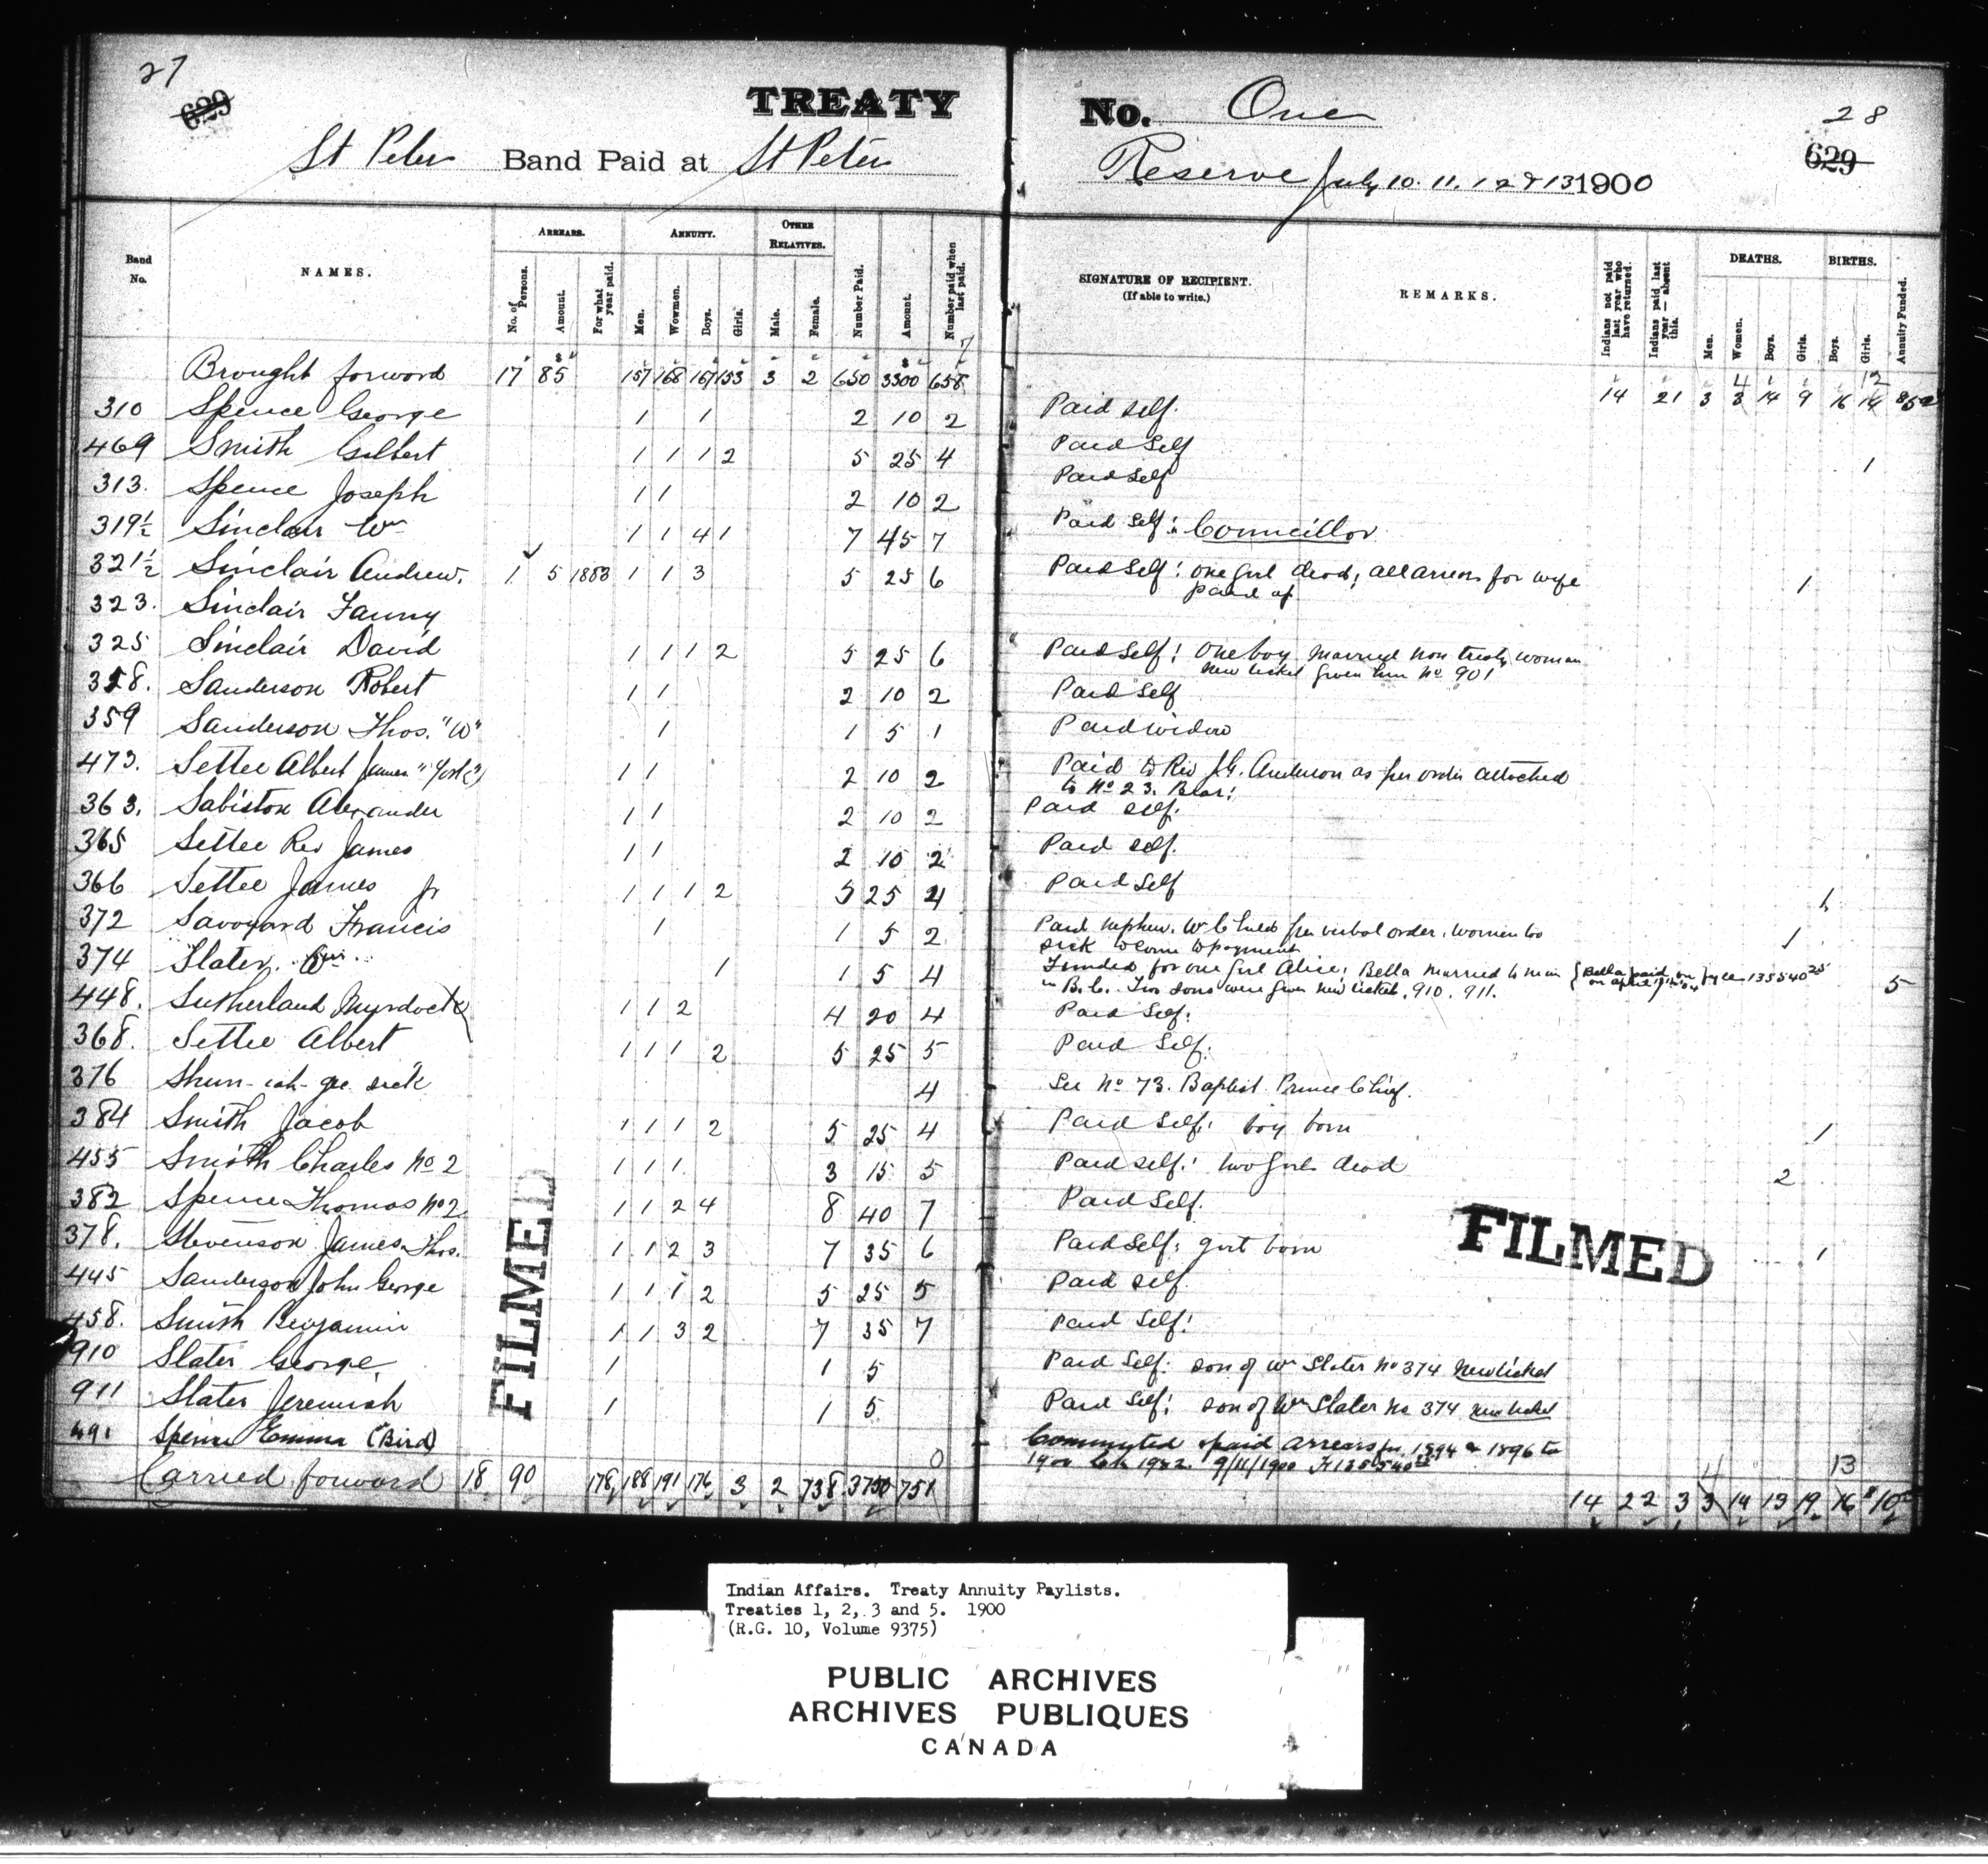 27
629
TREATY No. One
28
629
St Peter Band Paid at St Peter Reserve July 10. 11. 12 & 13 1900
Band No.
NAMES.
ARREARS.
No. of Persons.
Amount.
For what year paid.
ANNUITY.
Men.
Wowmen.
Boys.
Girls.
OTHER RELATIVES.
Male.
Female.
Number Paid.
Amount.
Number paid when last paid.
SIGNATURE OF RECIPIENT.
(If able to write.)
REMARKS.
Indians not paid last year who have returned.
Indians paid last year — absent this.
DEATHS.
Men.
Women.
Boys.
Girls.
BIRTHS.
Boys.
Girls.
Annuity Funded.
Brought forward 17 85 157 168 167 153 3 2 650 3300 658 14 21 3 4 3 14 9 16 12 14
310 Spence George 1 1 2 10 2 Paid self.
469 Smith Gilbert 1 1 1 2 5 25 4 Paid Self 1
313. Spence Joseph 1 1 2 10 2 Paid Self
319½ Sinclair Wm 1 1 4 1 7 45 7 Paid Self: Councillor
321½ Sinclair Andrew. 1 5 1883 1 1 3 5 25 6 Paid Self: one girl dead; all arrears for wife 1
paid up
323. Sinclair Fanny
325 Sinclair David 1 1 1 2 5 25 6 Paid Self! One boy married non treaty woman
new ticket given him No 901
358. Sanderson Robert 1 1 2 10 2 Paid Self
359 Sanderson Thos. "W" 1 1 5 1 Paid widow
473. Settee Albert James 1 1 2 10 2 Paid to Rev J.G. Anderson as per order attached
to No 23. Bear!
363. Sabiston Alexander 1 1 2 10 2 Paid self.
365 Settee Rev James 1 1 2 10 2 Paid self.
366 Settee James Jr 1 1 1 2 5 25 4 Paid Self 1
372 Savoyard Francis 1 1 5 2 Paid nephew. per verbal order. women too 1
sick to come to payment
374 Slater. Wm. 1 1 5 4 Funded for one girl Alice; Bella married to man 5
in B.C. Two sons were given new ticket. 910. 911.
448. Sutherland Myrdock 1 1 2 4 20 4 Paid Self:
368. Settee Albert 1 1 1 2 5 25 5 Paid Self.
376 Shun-cah-gee sick 4 See No 73. Baptist Prince Chief.
384 Smith Jacob 1 1 1 2 5 25 4 Paid Self: boy born 1
455 Smith Charles No 2 1 1 1 3 15 5 Paid self! two girls dead 2
382 Spence Thomas No 2 1 1 2 4 8 40 7 Paid Self.
378. Stevenson James Thos. 1 1 2 3 7 35 6 Paid Self; girl born 1
445 Sanderson John George 1 1 1 2 5 25 5 Paid self
458. Smith Benjamin 1 1 3 2 7 35 7 Paid Self!
910 Slater George 1 1 5 Paid Self. son of Wm Slater No 374 New ticket
911 Slater Jeremiah 1 1 5 Paid Self; son of Wm Slater No 374 New ticket
491 Spence Emma (Bird) 0 Commuted & paid arrears for 1894 & 1896 to
1900 9/11/1900
Carried forward 18 90 178 188 191 176 3 2 738 3750 751 14 22 3 4 3 14 13 19 13 16
FILMED
FILMED
Indian Affairs. Treaty Annuity Paylists.
Treaties 1, 2, 3 and 5. 1900
(R.G. 10, Volume 9375)
PUBLIC ARCHIVES
ARCHIVES PUBLIQUES
CANADA